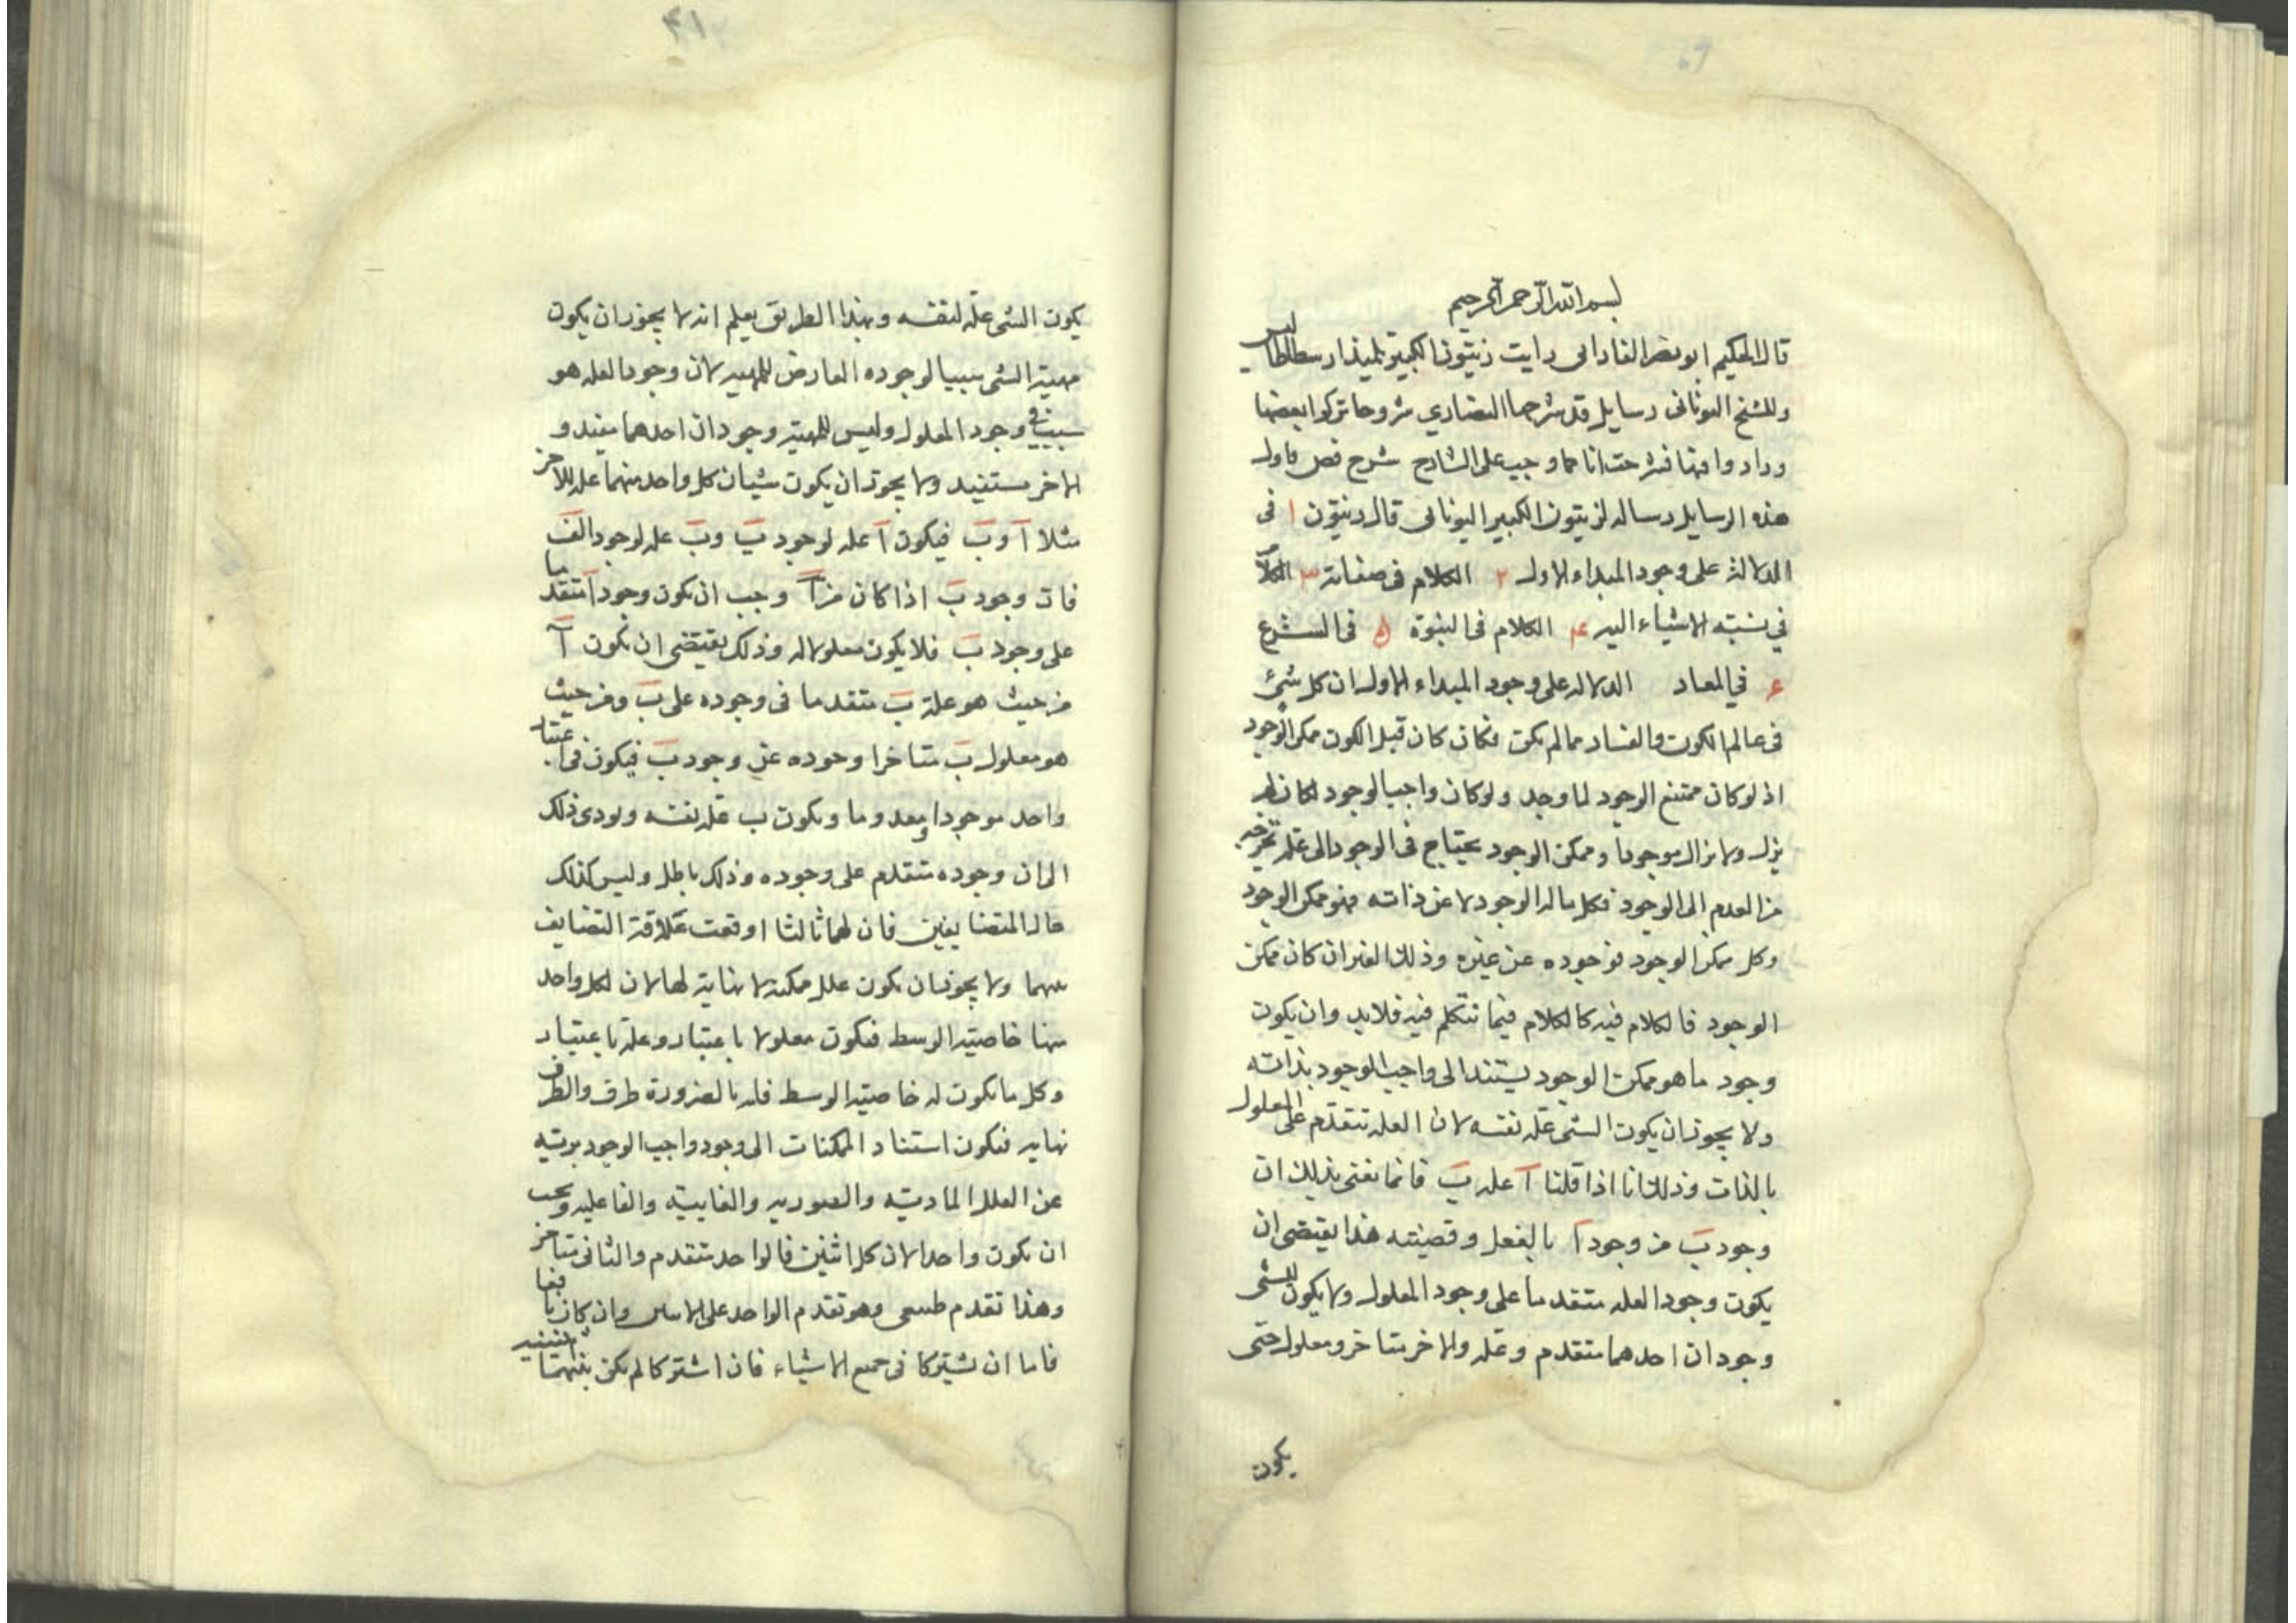 بسم الله الرحمن الرحيم
قال الحكيم ابو نصر الفارابى رايت زيتون الكبير تلميذ ارسطاطاليس
وللشيخ اليونانى رسايل قد شرحها النصارى شروحا تركوا بعضها
وزادوا فيها فشرحت انا كما وجب على الشارح شرح فص فاول
هذه الرسايل رساله لزيتون الكبير اليونانى قال زيتون ١ فى
الدلالة على وجود المبداء الاول ٢ الكلام فى صفاته ٣ الكلام
فى نسبة الاشياء اليه ۴ الكلام فى النبوة ۵ فى الشرع
۶ فى المعاد الدلاله على وجود المبداء الاول ان كل شئ
فى عالم الكون والفساد مما لم يكن فكان كان قبل الكون ممكن الوجود
اذ لو كان ممتنع الوجود لما وجد ولو كان واجب الوجود لكان لم
يزل ولا يزال موجودا وممكن الوجود يحتاج فى الوجود الى علة تخرجه
من العدم الى الوجود فكل ماله الوجود لا عن ذاته فهو ممكن الوجود
وكل ممكن الوجود فوجوده عن غيره وذلك الغير ان كان ممكن
الوجود فالكلام فيه كالكلام فيما نتكلم فيه فلابد وان يكون
وجود ما هو ممكن الوجود يستند الى واجب الوجود بذاته
ولا يجوز ان يكون الشئ علة نفسه لان العله تتقدم على المعلول
بالذات وذلك انا اذا قلنا آ علة ب فانما نعنى بذلك ان
وجود ب من وجود آ بالفعل وقضيته هذا يقتضى ان
يكون وجود العله متقدما على وجود المعلول ولا يكون للشئ
وجودان احدهما متقدم وعله والاخر متاخر ومعلول حتى
يكون
۴۱
يكون الشئ علة لنفسه وبهذا الطريق يعلم انه لا يجوز ان يكون
مهية الشئ سببا لوجوده العارض للمهية لان وجود العله هو
سبب فى وجود المعلول وليس للمهية وجودان احدهما مفيد و
الاخر مستفيد ولا يجوز ان يكون شيئان كل واحد منهما علة للاخر
مثلا آ و ب فيكون آ علة لوجود ب و ب علة لوجود الف
فان وجود ب اذا كان من آ وجب ان يكون وجود آ متقدما
على وجود ب فلا يكون معلولا له وذلك يقتضى ان يكون آ
من حيث هو علة ب متقدما فى وجوده على ب ومن حيث
هو معلول ب متاخرا وجوده عن وجود ب فيكون فى اعتبار
واحد موجودا ومعدوما ويكون ب علة نفسه ويودى ذلك
الى ان وجوده متقدم على وجوده وذلك باطل وليس كذلك
حال المتضايفين فان لهما ثالثا اوقعت علاقة التضايف
بينهما ولا يجوز ان يكون علل ممكنة لا نهاية لها لان لكل واحد
منها خاصية الوسط فيكون معلولا باعتبار وعلة باعتبار
وكل ما يكون له خاصية الوسط فله بالضرورة طرف والطرف
نهايه فيكون استناد الممكنات الى وجود واجب الوجود بريئه
عن العلل الماديه والصوريه والغاييه والفاعليه ويجب
ان يكون واحدا لان كل اثنين فالواحد متقدم والثانى متاخر
وهذا تقدم طبيعى وهو تقدم الواحد على الاثنين وان كان باقيا
فاما ان يشتركا فى جميع الاشياء فان اشتركا لم يكن بينهما اثنينيه